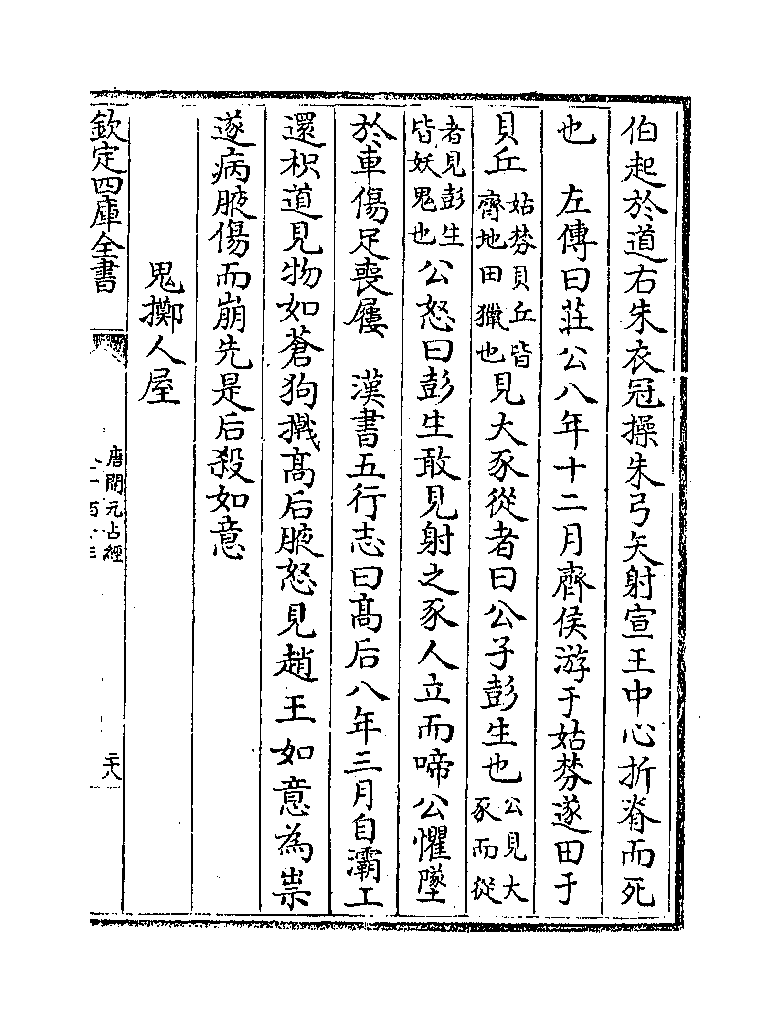 伯起於道右朱衣冠操朱弓矢射宣王中心折脊而死
也　左傳曰莊公八年十二月齊侯游于姑棼遂田于
貝丘姑棼貝丘皆齊地田獵也見大豕從者曰公子彭生也公見大豕而從
者見彭生皆妖鬼也公怒曰彭生敢見射之豕人立而啼公懼墜
於車傷足喪屨　漢書五行志曰髙后八年三月自灞工
還枳道見物如蒼狗撠髙后腋怒見趙王如意為祟
遂病腋傷而崩先是后殺如意
鬼擲人屋
欽定四庫全書
唐開元占經
二十八